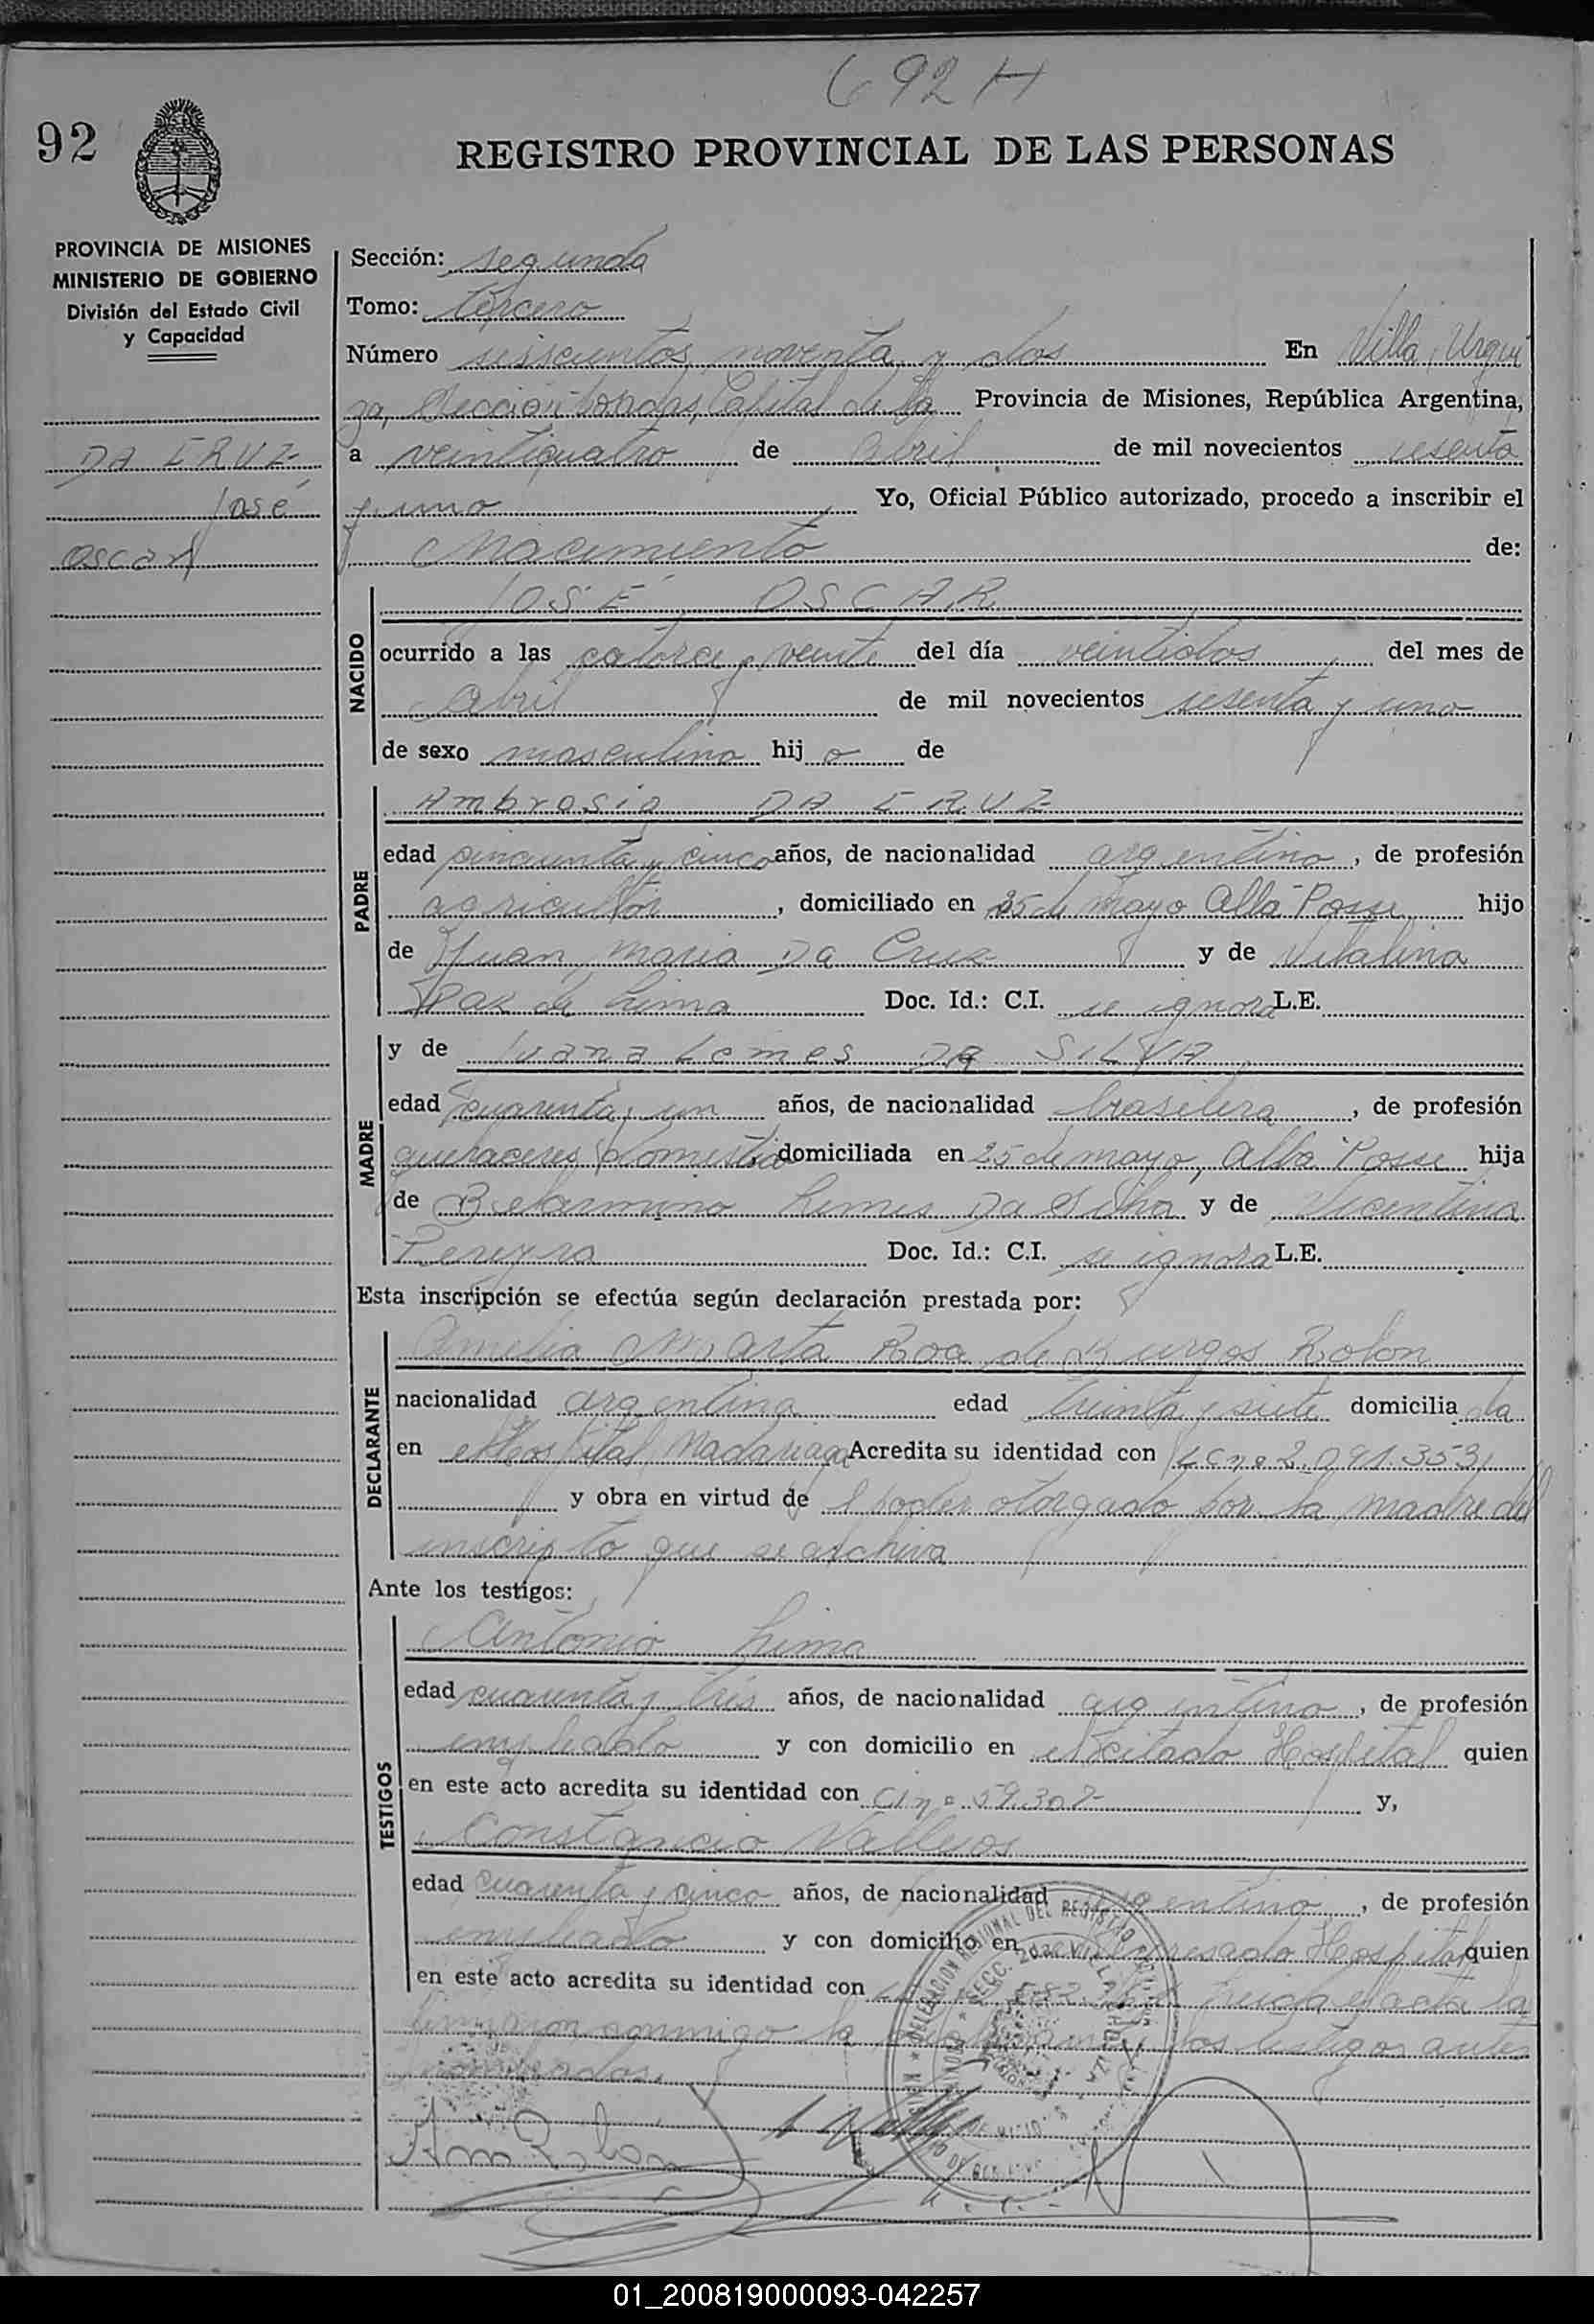 692 H
92
REGISTRO PROVINCIAL DE LAS PERSONAS
PROVINCIA DE MISIONES
MINISTERIO DE GOBIERNO
División del Estado Civil
y Capacidad
DA CRUZ
José
Oscar
Sección: segunda
Tomo: tercero
Número seiscientos noventa y dos En Villa Urqui
za, Sección Posadas, Capital de la Provincia de Misiones, República Argentina,
a veinticuatro de abril de mil novecientos sesenta
y uno Yo, Oficial Público autorizado, procedo a inscribir el
Nacimiento de:
NACIDO
JOSÉ OSCAR
ocurrido a las catorce y veinte del día veintidos del mes de
Abril de mil novecientos sesenta y uno
de sexo masculino hijo de
PADRE
Ambrosio DA CRUZ
edad cincuenta y cinco años, de nacionalidad argentino, de profesión
agricultor, domiciliado en 25 de Mayo Alba Posse hijo
de Juan Maria Da Cruz y de Vitalina
Paz de Lima Doc. Id.: C.I. se ignora L.E.
MADRE
y de Juana Lemes DA SILVA
edad cuarenta y un años, de nacionalidad brasilera, de profesión
quehaceres domiciliada en 25 de mayo, Alba Posse hija
de Belarmino Lemes Da Silva y de Vicentina
Pereyra Doc. Id.: C.I. se ignora L.E.
Esta inscripción se efectúa según declaración prestada por:
DECLARANTE
Amelia Marta Roa de Burgos Rolon
nacionalidad argentina edad treinta y siete domiciliada
en el Hospital Madariaga Acredita su identidad con LC nº 2.091.353,
y obra en virtud del poder otorgado por la madre del
inscripto que se archiva
Ante los testigos:
TESTIGOS
Antonio Lima
edad cuarenta y tres años, de nacionalidad argentino, de profesión
empleado y con domicilio en el citado Hospital quien
en este acto acredita su identidad con CI nº 59.307 y,
Constancio Vallejos
edad cuarenta y cinco años, de nacionalidad argentino, de profesión
empleado y con domicilio en Hospital quien
en este acto acredita su identidad con leida el acta la
firmaron conmigo la los testigos antes
nombrados.
Am Rolon
01_200819000093-042257